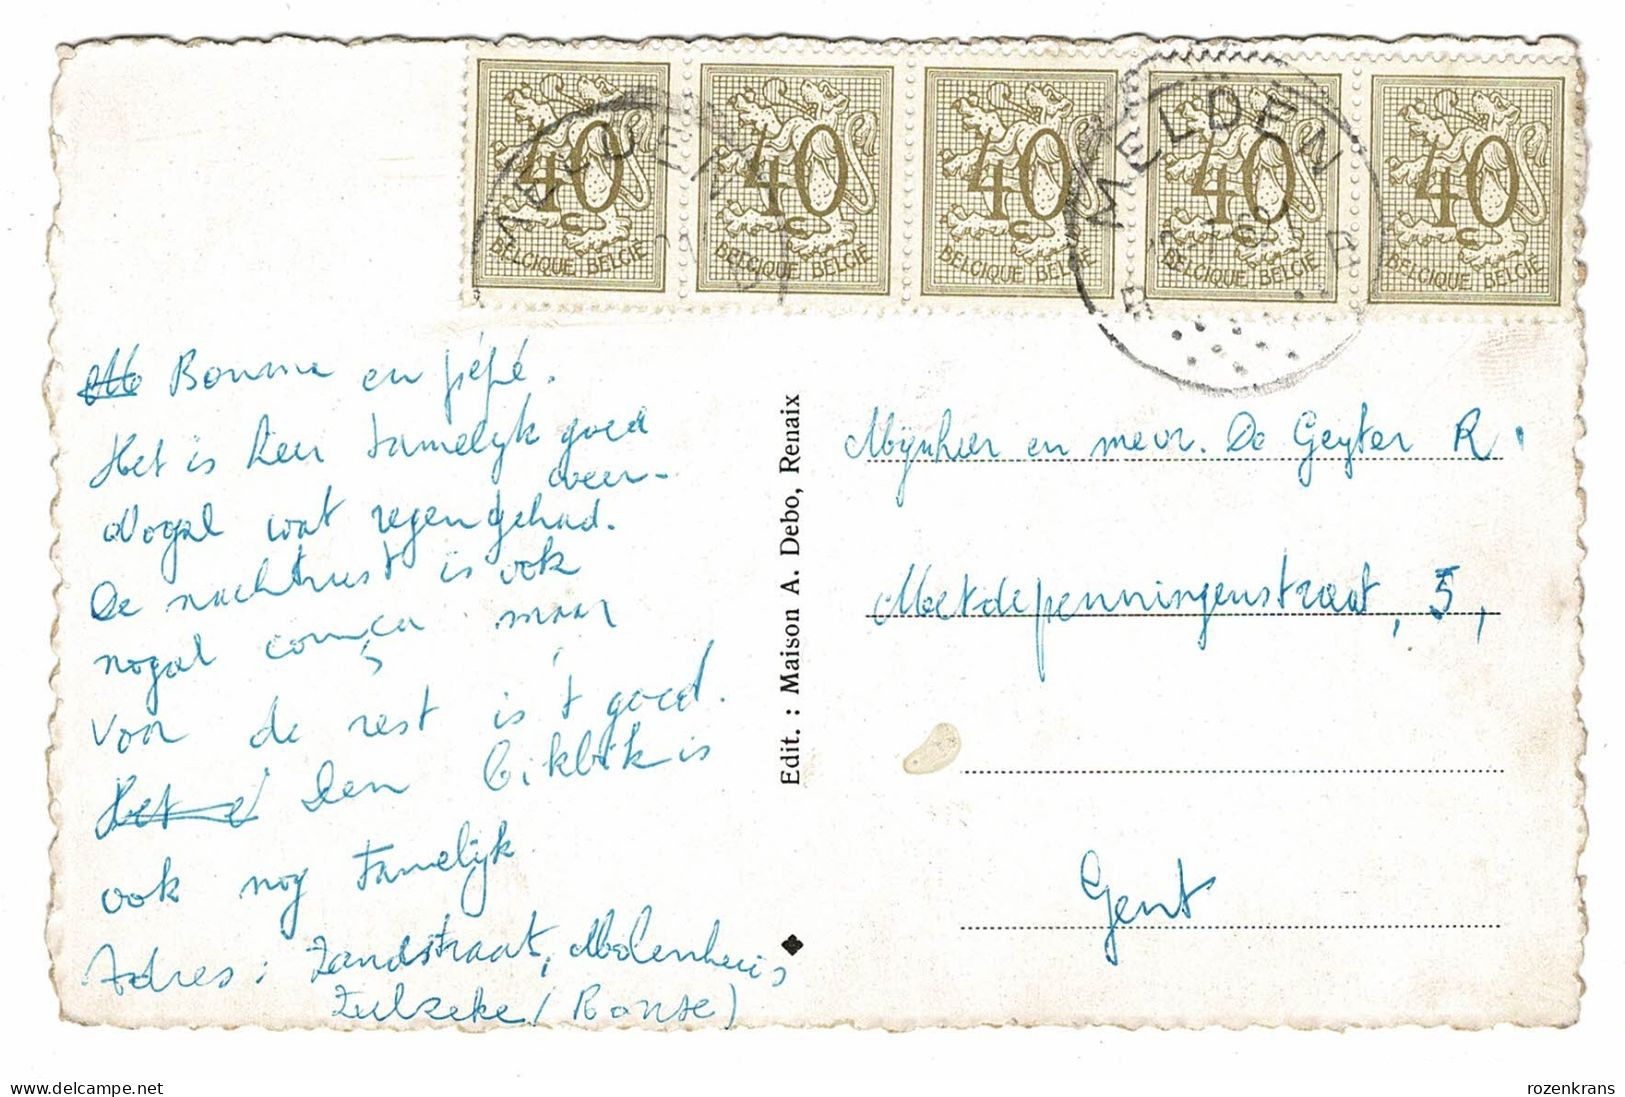 40 40 40 40 40
c c c c c
BELGIQUE BELGIË BELGIQUE BELGIË BELGIQUE BELGIË BELGIQUE BELGIË BELGIQUE BELGIË
MELDEN MELDEN
Bonma en pépé.
Het is hier tamelijk goed
weer-
Nogal wat regen gehad.
De nachtrust is ook
nogal comça maar
voor de rest is 't goed.
Het e Den bikbik is
ook nog tamelijk
Adres: Zandstraat, Molenhuis
Zulzeke (Ronse)
Edit. : Maison A. Debo, Renaix
Mijnheer en mevr. De Geyter R.
Metdepenningenstraat, 5,
Gent
www.delcampe.net
rozenkrans